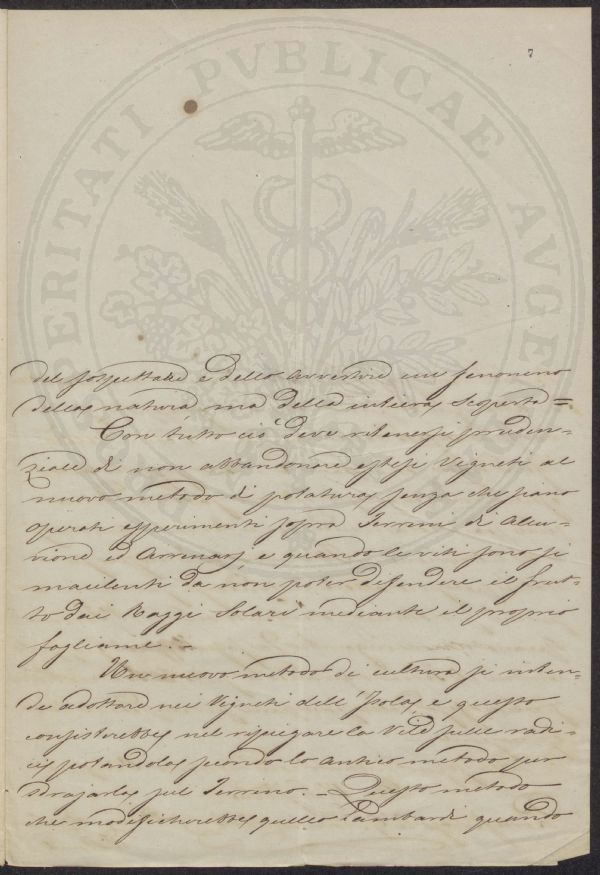 7
PROSPERITATI PVBLICAE AVGE
del sospettare e dello avvertire un fenomeno
della natura ma della intiera scoperta =
Con tutto ciò deve ritenersi pruden-
ziale di non abbandonare estesi Vigneti al
nuovo metodo di potatura senza che siano
operati esperimenti sopra Terreni di Allu-
vione ed Arrenarj e quando le viti sono si
macilenti da non poter difendere il frut-
to dai Raggi Solari mediante il proprio
fogliame. -
Un nuovo metodo di cultura si inten-
de adottare nei Vigneti dell' Isola, e questo
consisterebbe nel ripiegare la Vite sulle radi-
ci potandola secondo lo antico metodo per
sdrajarla sul Terreno. - Questo metodo
che modificherebbe quello Lambardi quando